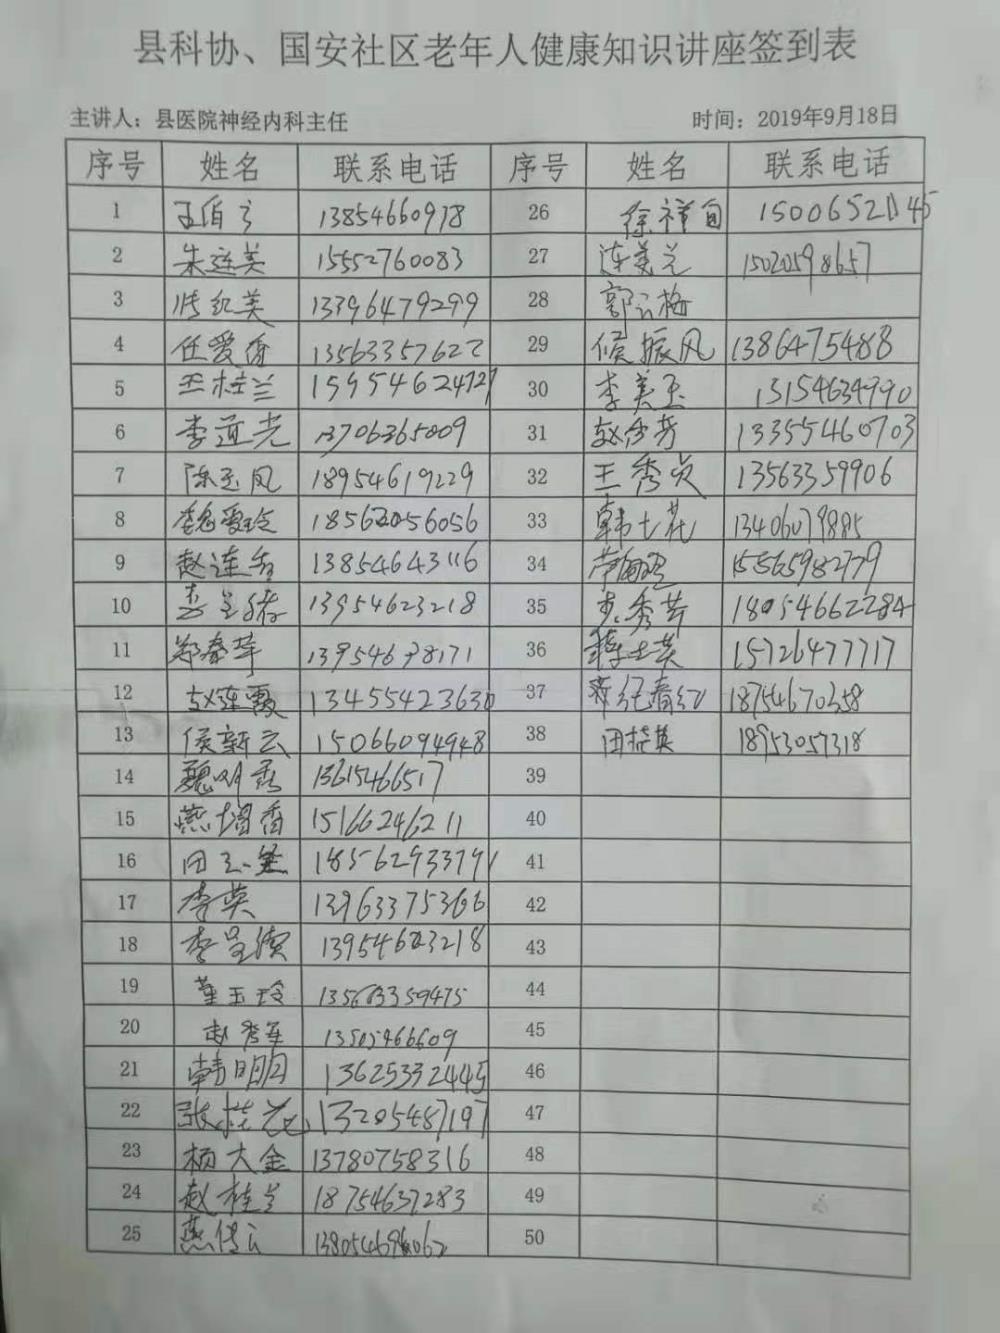 县科协、国安社区老年人健康知识讲座签到表
主讲人：县医院神经内科主任 时间：2019年9月18日
序号 姓名 联系电话 序号 姓名 联系电话
1 13854660978 26 徐祥
2 朱连美 15552760083 27 连美兰 15020598657
3 张红美 13396479299 28 郭云梅
4 任爱香 13563357622 29 侯振风 13864754888
5 王桂兰 30 李美玉 13154634990
6 李道光 13706365009 31 赵秀芳 13355460703
7 陈玉凤 18954619229 32 王秀贞 13563359906
8 魏爱玲 18562056056 33 韩七花 13406079885
9 赵连香 13854643116 34 15565982779
10 13954623218 35 秀芹 18054662284
11 郑春芹 13954678171 36 15726477717
12 赵连霞 13455423630 37 18754670358
13 侯新云 15066094948 38 田桂英 18953057318
14 魏明秀 13615466517 39
15 燕增香 15166246211 40
16 田 18562933791 41
17 李英 13963375366 42
18 李 13954623218 43
19 董玉玲 13563359475 44
20 赵秀军 13505466609 45
21 韩明月 13625332445 46
22 张桂花 13205487197 47
23 杨大金 13780758316 48
24 赵桂兰 18754637283 49
25 燕传云 50